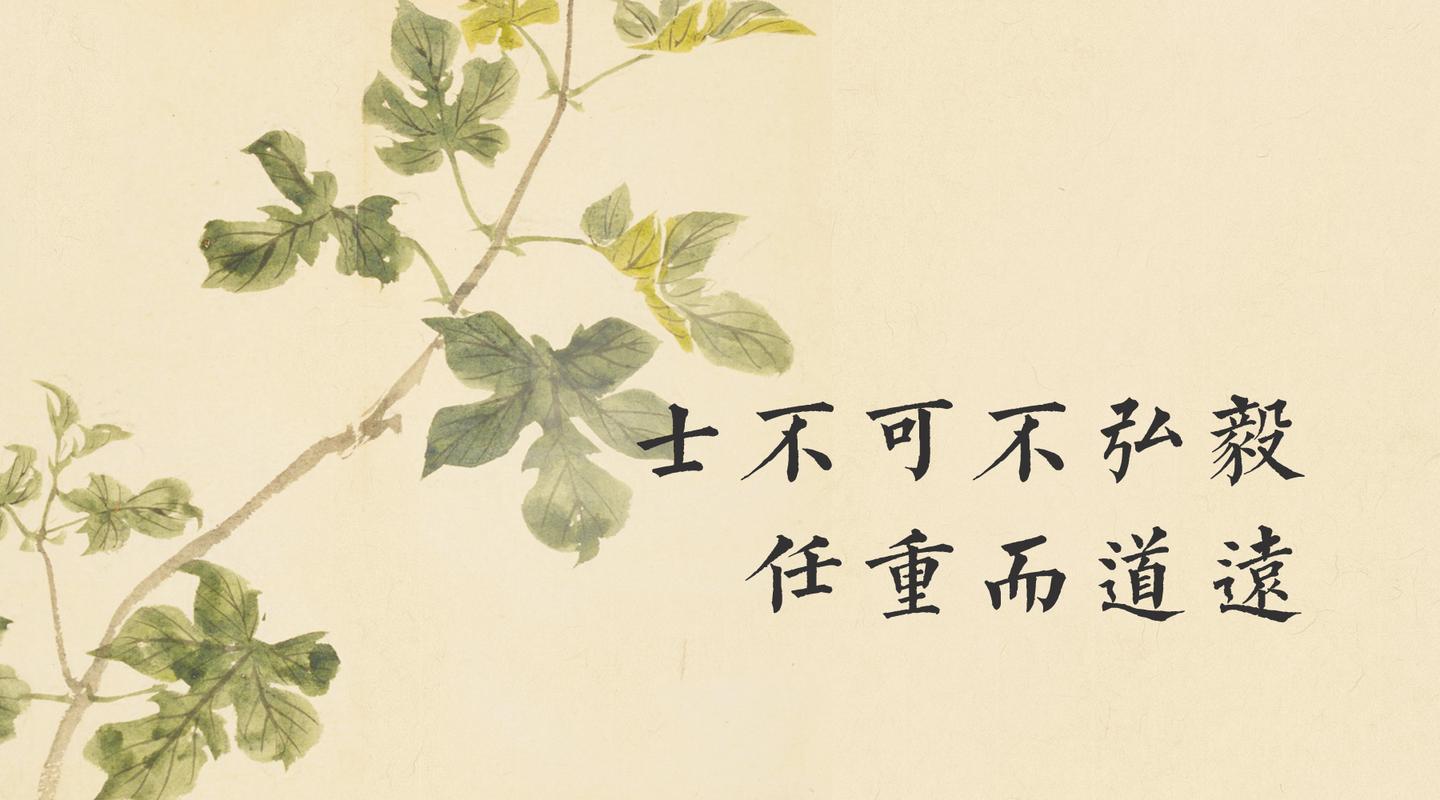 士不可不弘毅
任重而道遠